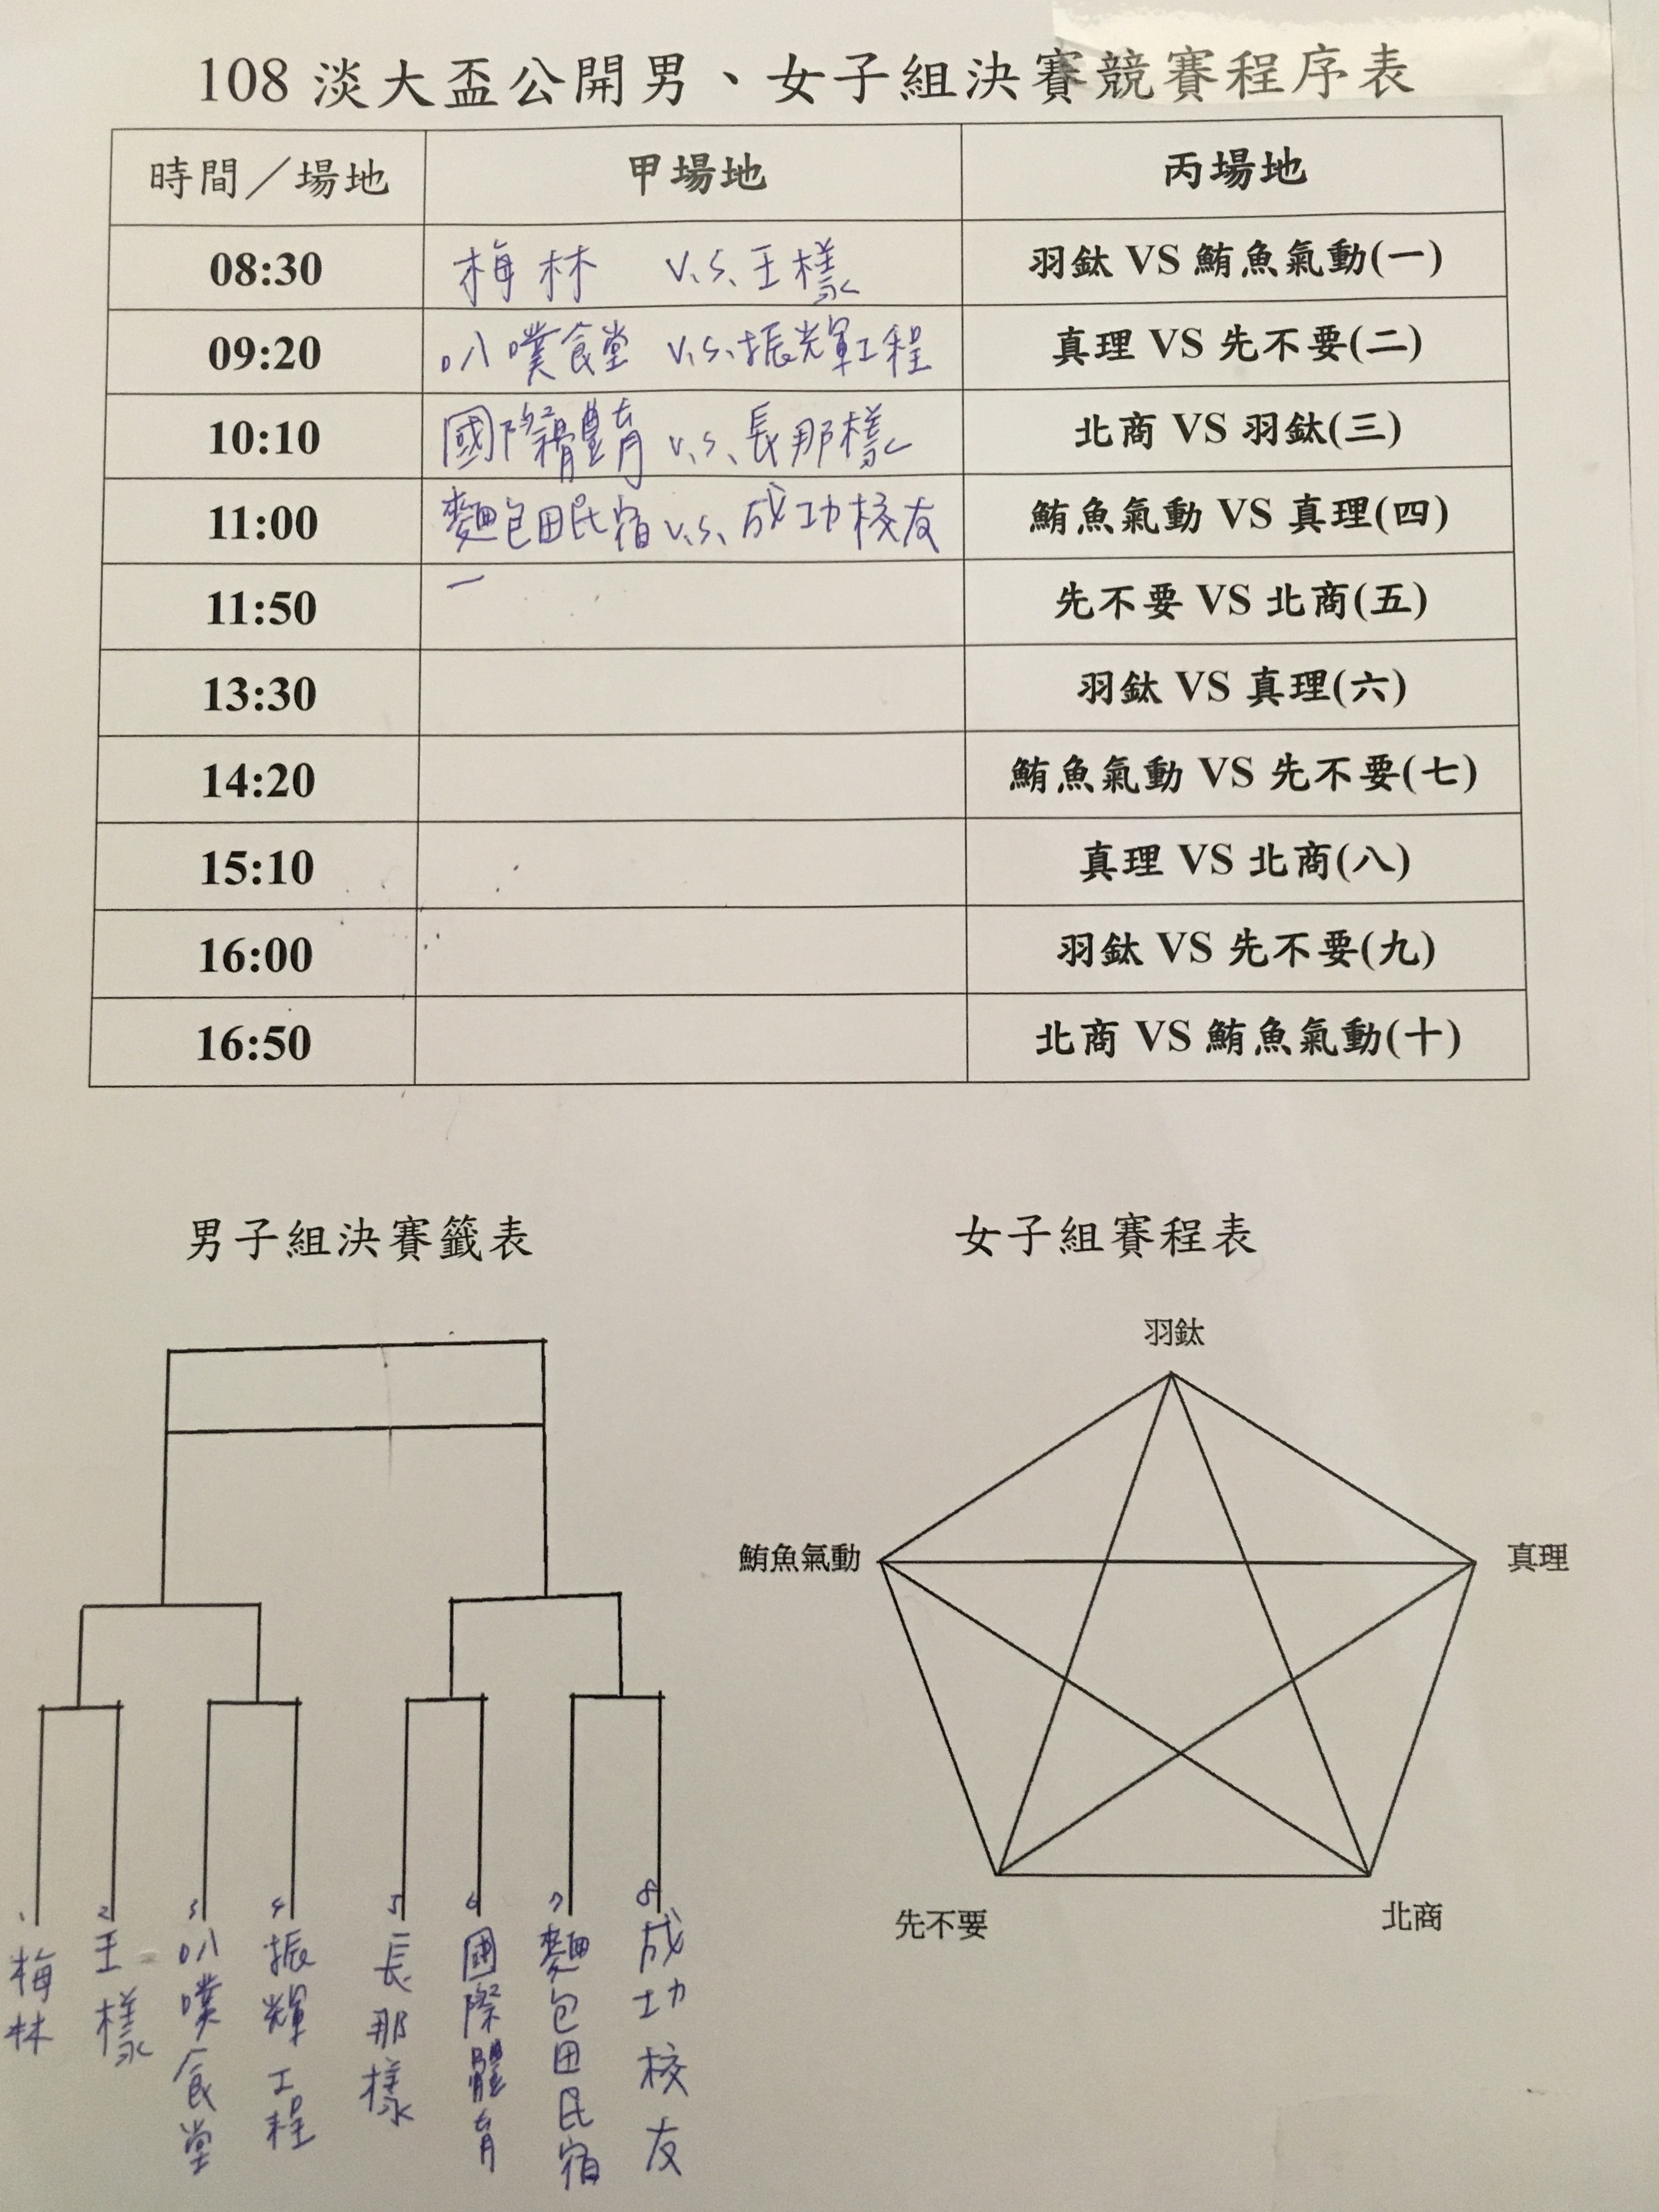 108 淡大盃公開男、女子組決賽競賽程序表
時間／場地 甲場地 丙場地
08:30 梅林 v.s. 王樣 羽鈦 VS 鮪魚氣動(一)
09:20 叭噗食堂 v.s. 振輝工程 真理 VS 先不要(二)
10:10 國際體育 v.s. 長那樣 北商 VS 羽鈦(三)
11:00 麵包田民宿 v.s. 成功校友 鮪魚氣動 VS 真理(四)
11:50 先不要 VS 北商(五)
13:30 羽鈦 VS 真理(六)
14:20 鮪魚氣動 VS 先不要(七)
15:10 真理 VS 北商(八)
16:00 羽鈦 VS 先不要(九)
16:50 北商 VS 鮪魚氣動(十)
男子組決賽籤表
1 梅林
2 王樣
3 叭噗食堂
4 振輝工程
5 長那樣
6 國際體育
7 麵包田民宿
8 成功校友
女子組賽程表
羽鈦
鮪魚氣動
真理
先不要
北商